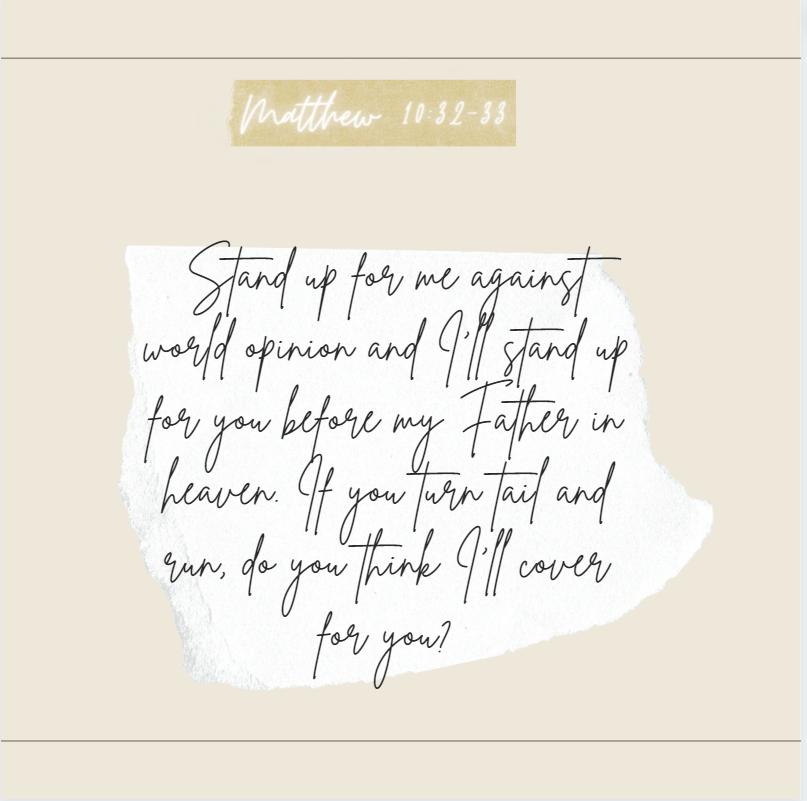 Matthew 10:32-33
Stand up for me against
world opinion and I'll stand up
for you before my Father in
heaven. If you turn tail and
run, do you think I'll cover
for you?